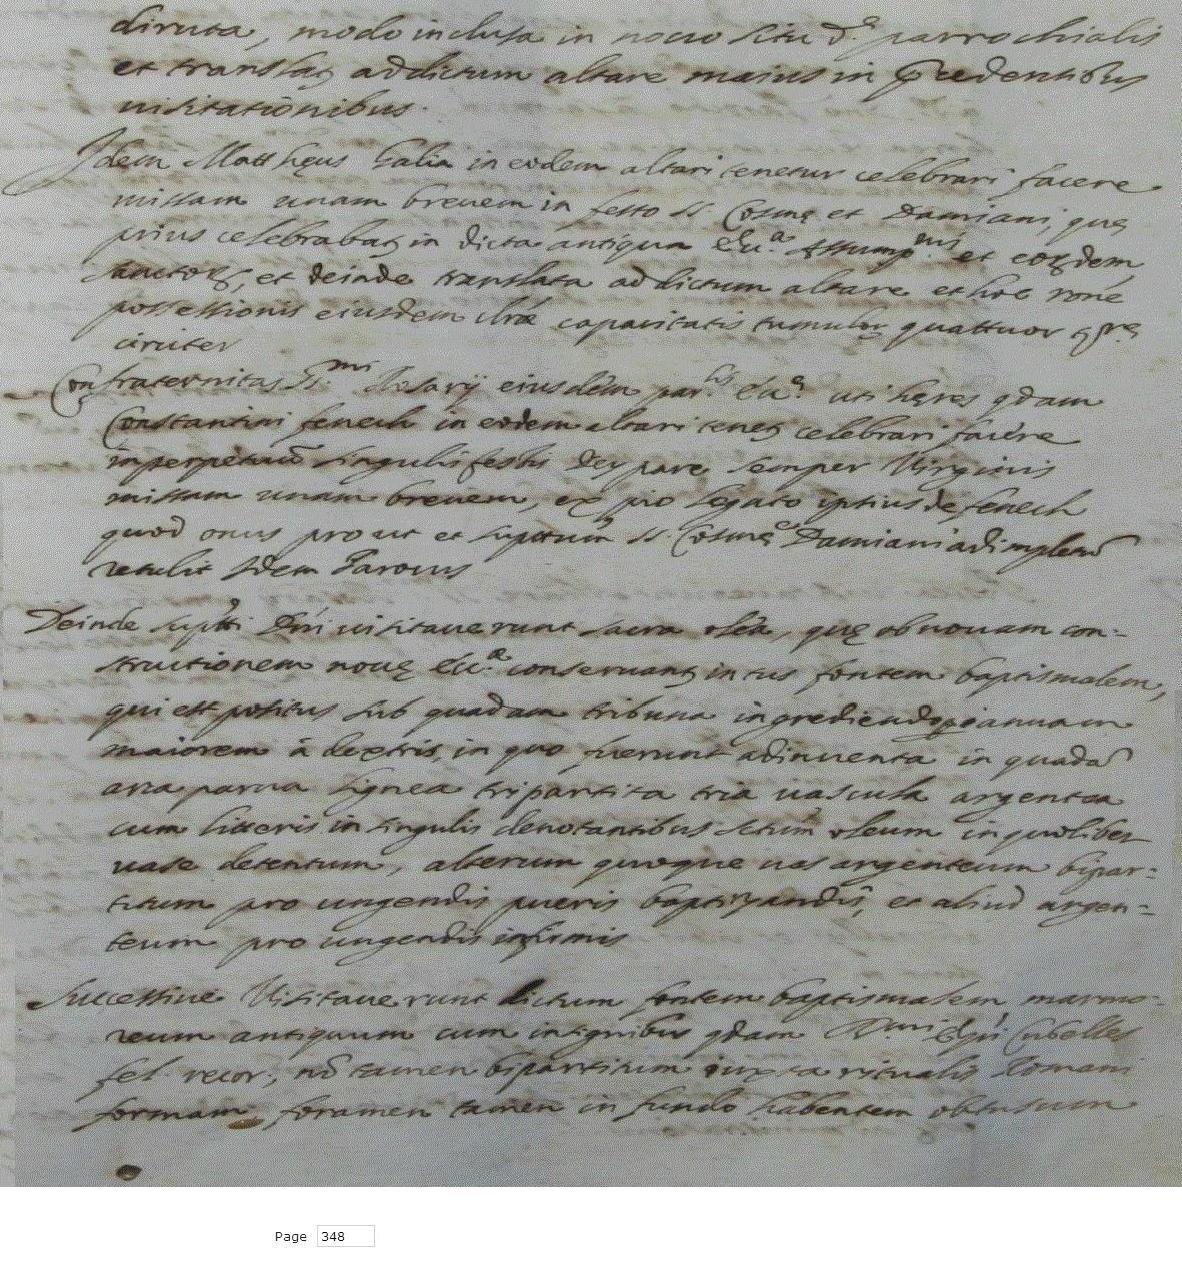 diruta, modo inclusa in nouo situ d.ę parrochialis
et translaģ ad dictum altare maius in precedentibus
uisitationibus.
Idem Mattheus Galia in eodem altari tenetur celebrari facere
missam unam breuem in festo SS. Cosmę et Damiani, quę
prius celebrabaģ in dicta antiqua Ecc.a Assump.nis et eordem
sanctor, et deinde translata ad dictum altare et hoc rone
possessionis eiusdem capacitatis tumulor quattuor
circiter
Confraternitas SS.mi Rosarij eiusdem par.lis Ecc.ę uti hęres qdam
Constantini fenech in eodem altari teneģ celebrari facere
in perpetuũ singulis festis Deiparę semper Virginis
missam unam breuem, ex pio legato ipsius de fenech
quod onus prout et supttum SS. Cosmę et Damiani adimpleri
retulit Idem Parocus
Deinde suptti Dni uisitauerunt sacra olea, quę ob nouam con=
structionem nouę Ecc.ę conseruanģ intus fontem baptismalem,
qui est positus sub quadam tribuna ingrediendo januam
maiorem à dextris, in quo fuerunt adinuenta in quadã
arca parua lignea tripartita tria uascula argentea
cum litteris in singulis denotantibus sctum oleum in quolibet
uase detentum, alterum quoque uas argenteum bipar=
titum pro ungendis pueris baptizandis, et aliud argen=
teum pro ungendis infirmis
Successiue Visitauerunt dictum fontem baptismalem marmo=
reum antiquum cum insignibus qdam Epi Cubelles
fel: recor:, nõ tamen bipartitum iuxta ritualis Romani
formam, foramen tamen in fundo habentem obtusum
Page 348